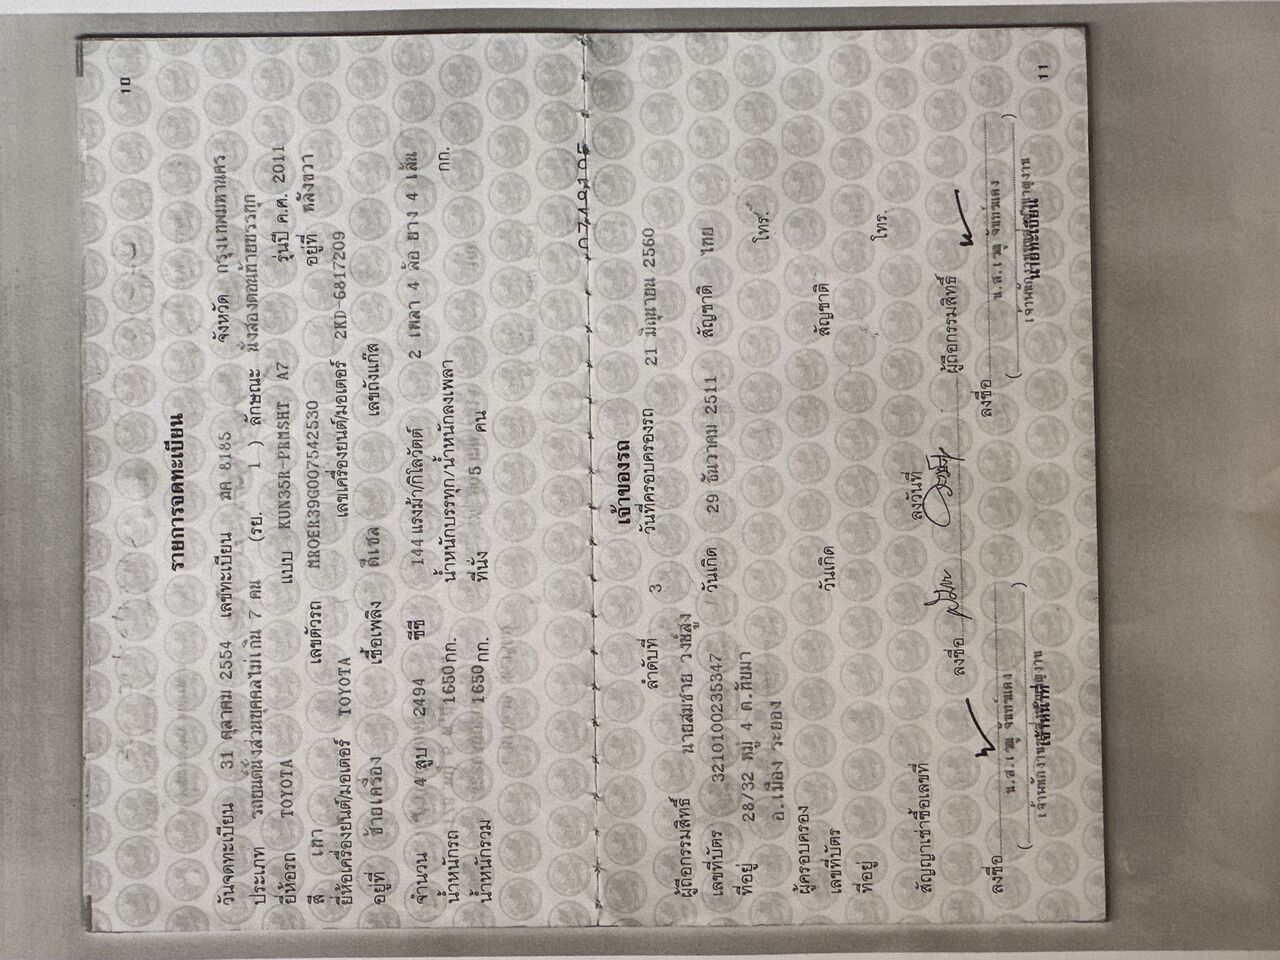 10
รายการจดทะเบียน
วันจดทะเบียน 31 ตุลาคม 2554 เลขทะเบียน ฌค 8185 จังหวัด กรุงเทพมหานคร
ประเภท รถยนต์นั่งส่วนบุคคลไม่เกิน 7 คน (รย. 1 ) ลักษณะ นั่งสองตอนท้ายบรรทุก
ยี่ห้อรถ TOYOTA แบบ KUN35R-PRMSHT A7 รุ่นปี ค.ศ. 2011
สี เทา เลขตัวรถ MROER39G007542530 อยู่ที่ หลังขวา
ยี่ห้อเครื่องยนต์/มอเตอร์ TOYOTA เลขเครื่องยนต์/มอเตอร์ 2KD-6817209
อยู่ที่ ซ้ายเครื่อง เชื้อเพลิง ดีเซล เลขถังแก๊ส
จำนวน 4 สูบ 2494 ซีซี 144 แรงม้า/กิโลวัตต์ 2 เพลา 4 ล้อ ยาง 4 เส้น
น้ำหนักรถ 1650 กก. น้ำหนักบรรทุก/น้ำหนักลงเพลา กก.
น้ำหนักรวม 1650 กก. ที่นั่ง 5 คน
เจ้าของรถ
ลำดับที่ 3 วันที่ครอบครองรถ 21 มิถุนายน 2560
ผู้ถือกรรมสิทธิ์ นายสมชาย วงษ์สูง
เลขที่บัตร 3210100235347 วันเกิด 29 ธันวาคม 2511 สัญชาติ ไทย
ที่อยู่ 28/32 หมู่ 4 ต.ทับมา โทร.
อ.เมือง ระยอง
ผู้ครอบครอง
เลขที่บัตร วันเกิด สัญชาติ
ที่อยู่ โทร.
สัญญาเช่าซื้อเลขที่ ลงวันที่
ลงชื่อ ผู้ถือกรรมสิทธิ์
ลงชื่อ ลงชื่อ
11